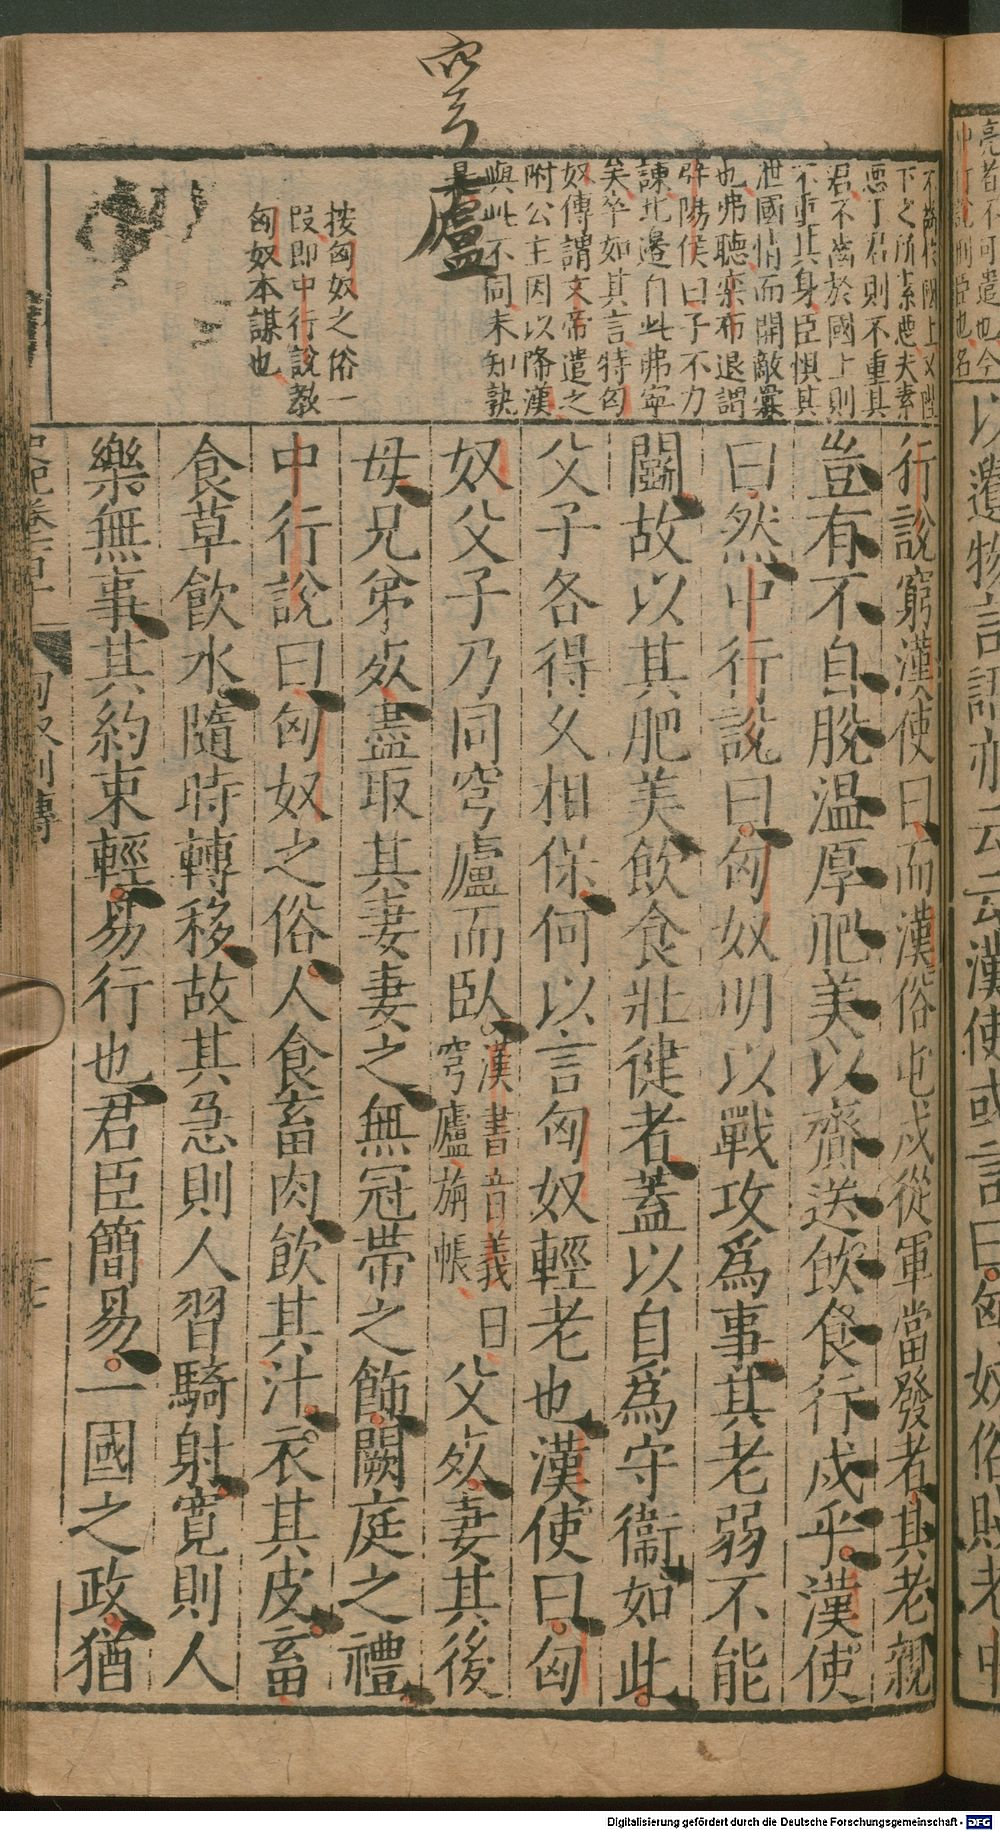 穹
廬
亮者不可遣也今
中行說刑臣也名
不齒於國上又陛
下之所素惡夫素
惡于君則不重其
君不齒於國上則
不重其身臣懼其
泄國情而開敵釁
也弗聽欒布退謂
辟陽侯曰子不力
諫北邊自此弗寧
矣卒如其言特匈
奴傳謂文帝遣之
附公主因以降漢
與此不同未知孰
是
按匈奴之俗一
段即中行說教
匈奴本謀也
以遺物言語亦云云漢使或言曰匈奴俗賤老中
行說窮漢使曰而漢俗屯戍從軍當發者其老親
豈有不自脫温厚肥美以齎送飲食行戍乎漢使
曰然中行說曰匈奴明以戰攻爲事其老弱不能
鬬故以其肥美飲食壯徤者蓋以自爲守衞如此
父子各得久相保何以言匈奴輕老也漢使曰匈
奴父子乃同穹廬而臥漢書音義曰穹廬旃帳父死妻其後
母兄弟死盡取其妻妻之無冠帶之飾闕庭之禮
中行說曰匈奴之俗人食畜肉飲其汁衣其皮畜
食草飲水隨時轉移故其急則人習騎射寬則人
樂無事其約束輕易行也君臣簡易一國之政猶
史記卷百十
匈奴列傳
十七
Digitalisierung gefördert durch die Deutsche Forschungsgemeinschaft - DFG